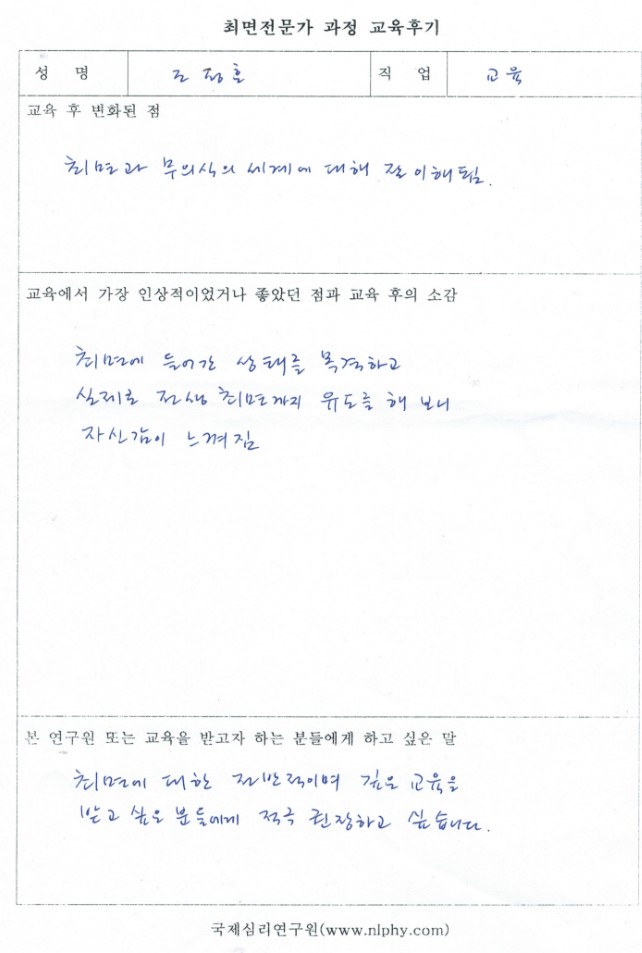 최면전문가 과정 교육후기
성 명 조장훈 직 업 교육
교육 후 변화된 점
최면과 무의식의 세계에 대해 잘 이해됨.
교육에서 가장 인상적이었거나 좋았던 점과 교육 후의 소감
최면에 들어간 상태를 목격하고
실제로 전생 최면까지 유도를 해 보니
자신감이 느껴짐
본 연구원 또는 교육을 받고자 하는 분들에게 하고 싶은 말
최면에 대한 전반적이며 깊은 교육을
받고 싶은 분들에게 적극 권장하고 싶습니다.
국제심리연구원(www.nlphy.com)